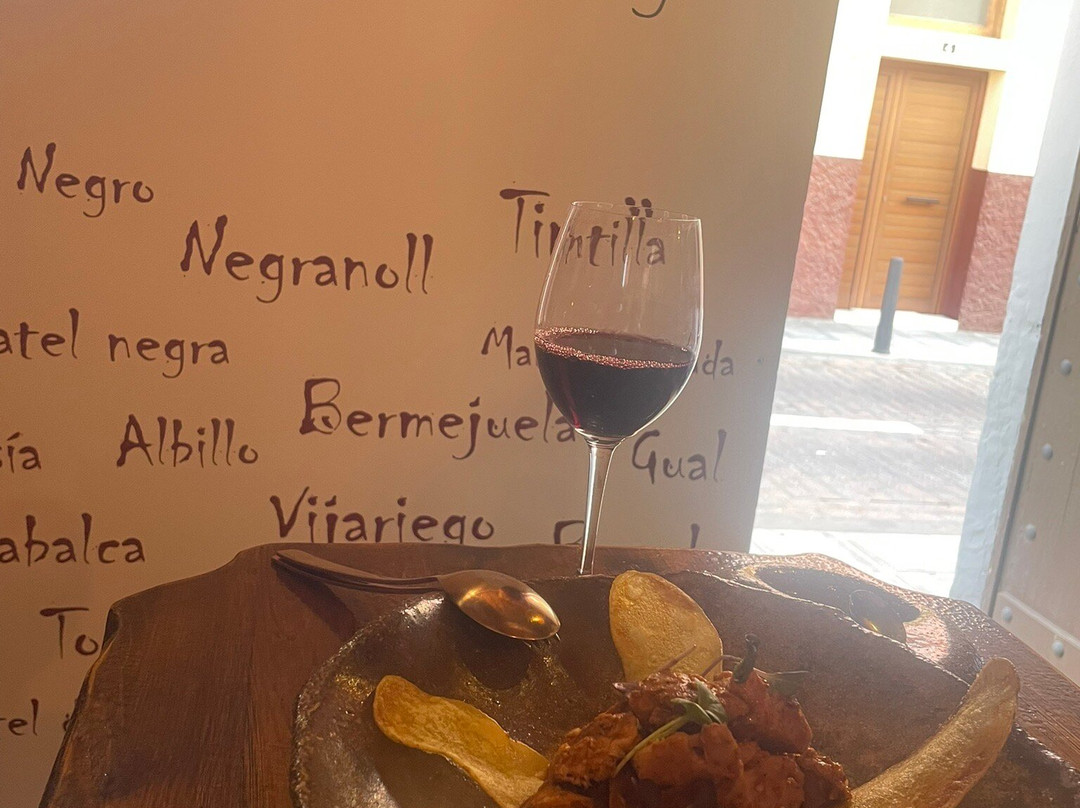 Negro
Negranoll
Tintilla
atel negra
Bermejuela
ía Albillo
Gual
Vijariego
abalca